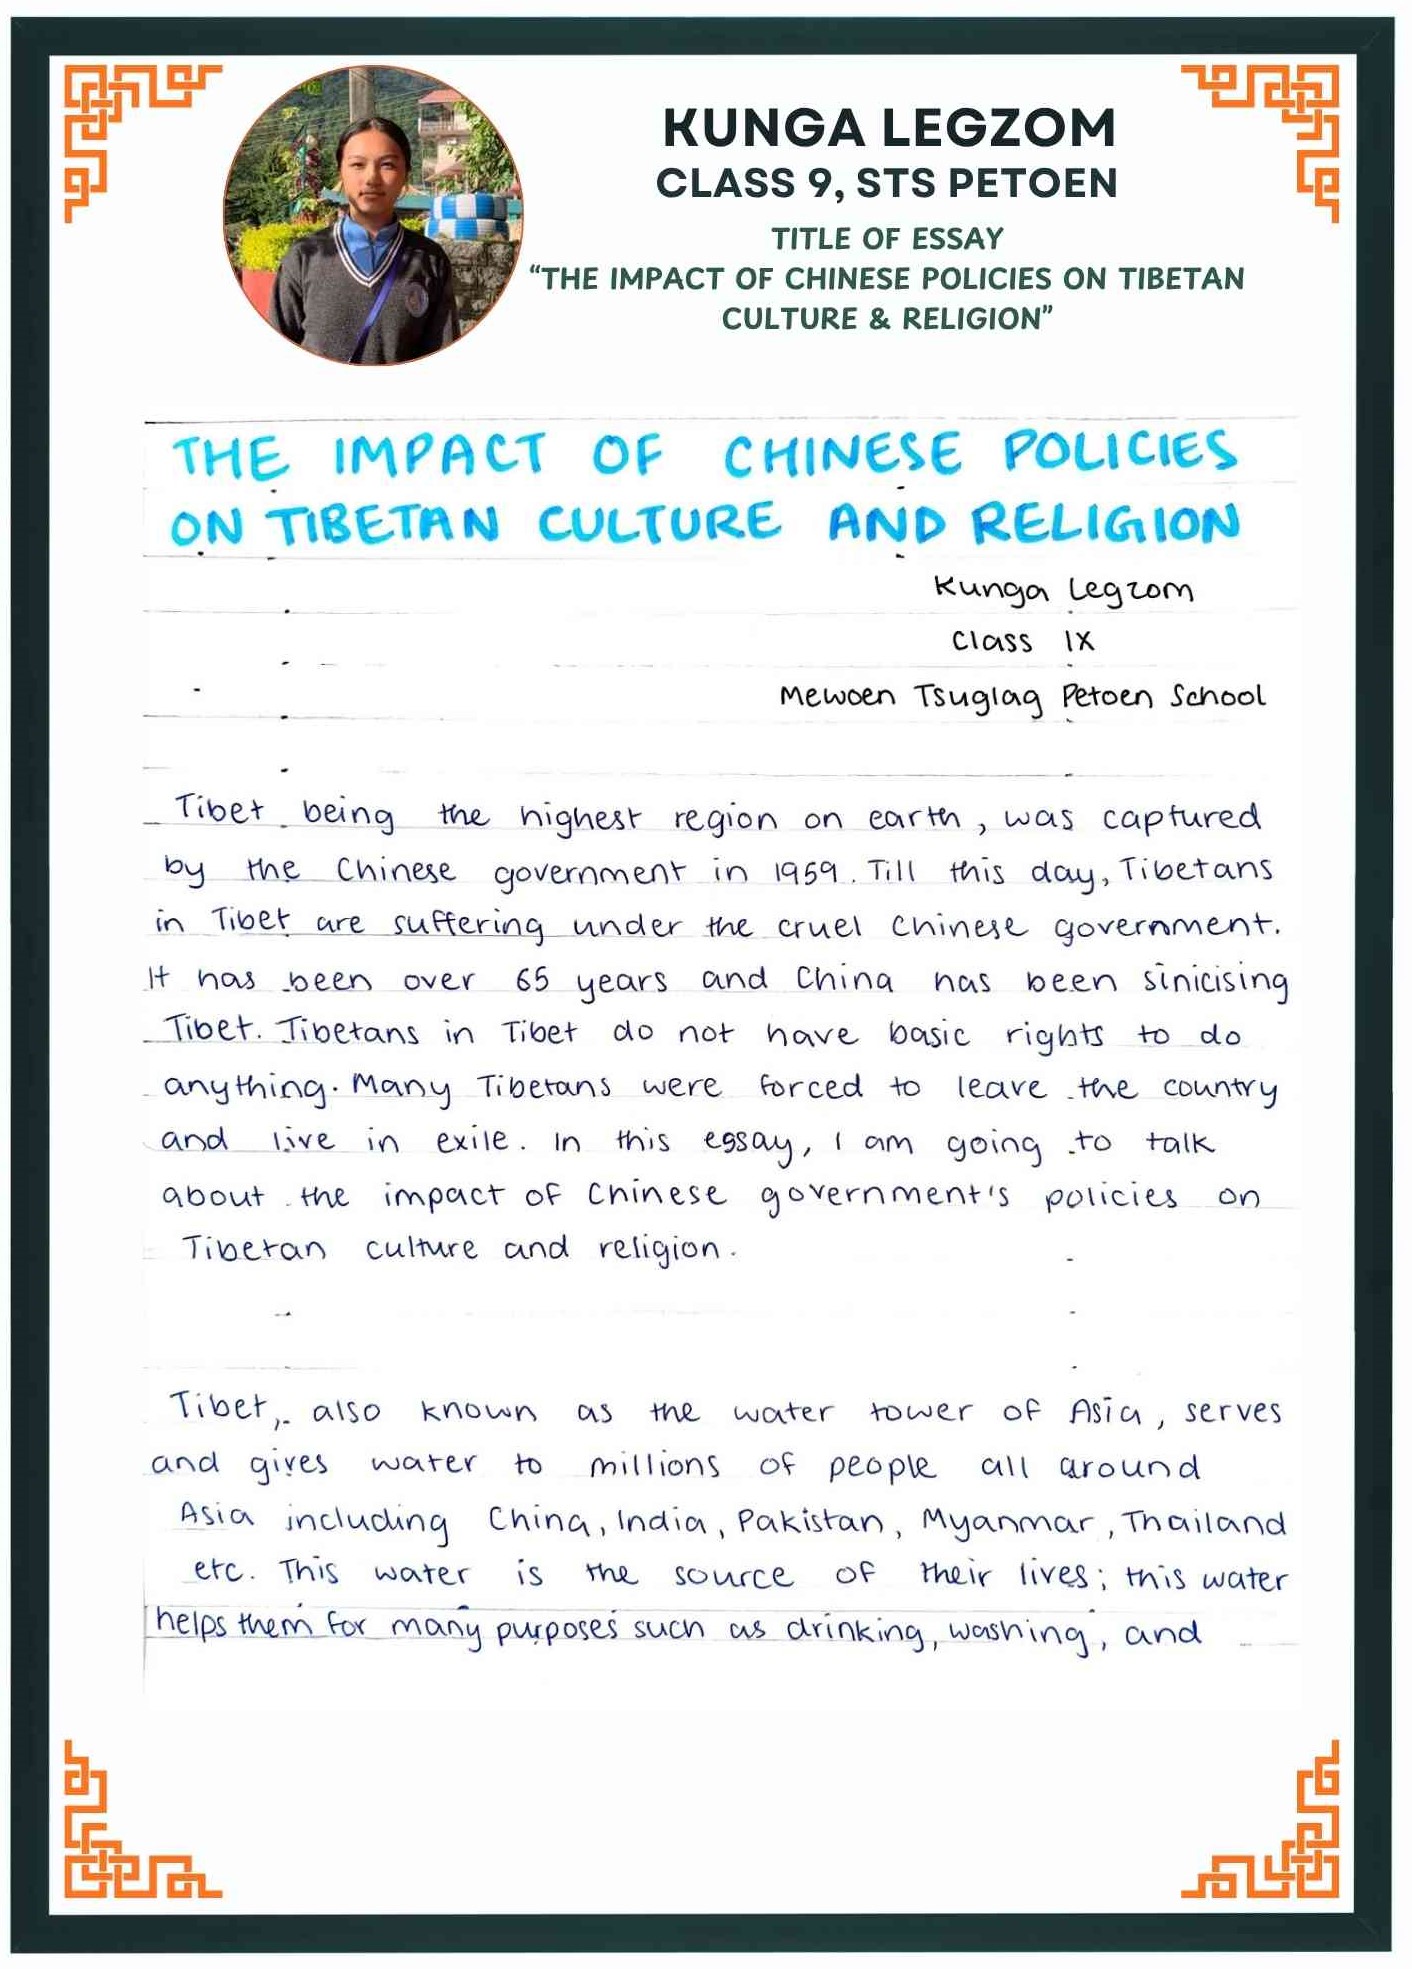 KUNGA LEGZOM
CLASS 9, STS PETOEN
TITLE OF ESSAY
“THE IMPACT OF CHINESE POLICIES ON TIBETAN
CULTURE & RELIGION”
THE IMPACT OF CHINESE POLICIES
ON TIBETAN CULTURE AND RELIGION
Kunga Legzom
Class IX
Mewoen Tsuglag Petoen School
Tibet being the highest region on earth, was captured
by the Chinese government in 1959. Till this day, Tibetans
in Tibet are suffering under the cruel Chinese government.
It has been over 65 years and China has been sinicising
Tibet. Tibetans in Tibet do not have basic rights to do
anything. Many Tibetans were forced to leave the country
and live in exile. In this essay, I am going to talk
about the impact of Chinese government's policies on
Tibetan culture and religion.
Tibet, also known as the water tower of Asia, serves
and gives water to millions of people all around
Asia including China, India, Pakistan, Myanmar, Thailand
etc. This water is the source of their lives; this water
helps them for many purposes such as drinking, washing, and